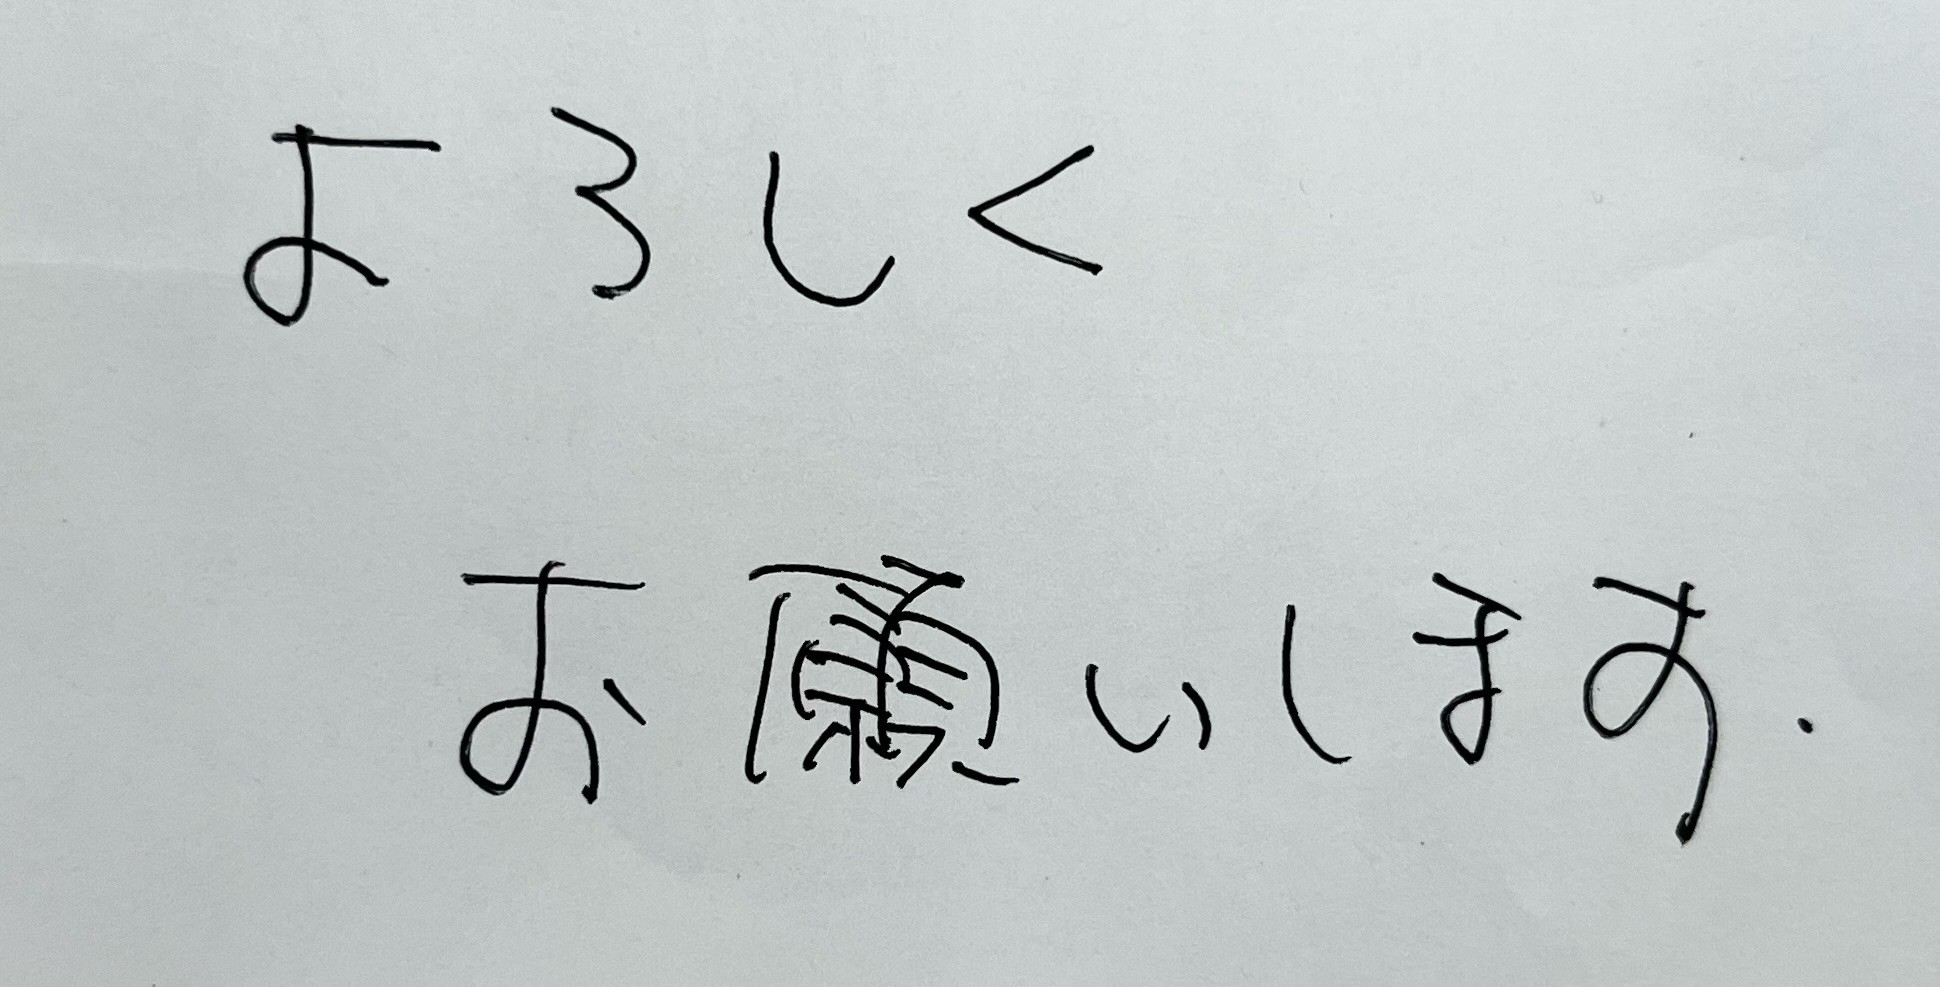 よろしく
お願いします.